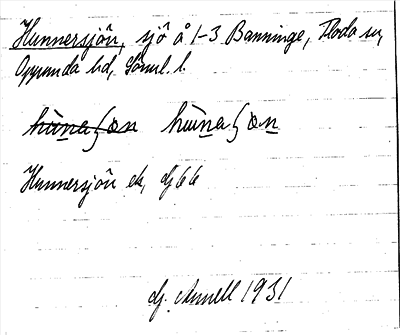 Hunnersjön, sjö å 1-3 Banninge, Floda sn,
Oppunda hd, Söml. l.
hùnaʃøn hùnaʃøn
Hunnersjön ek, dj 66
dj. Arnell 1931